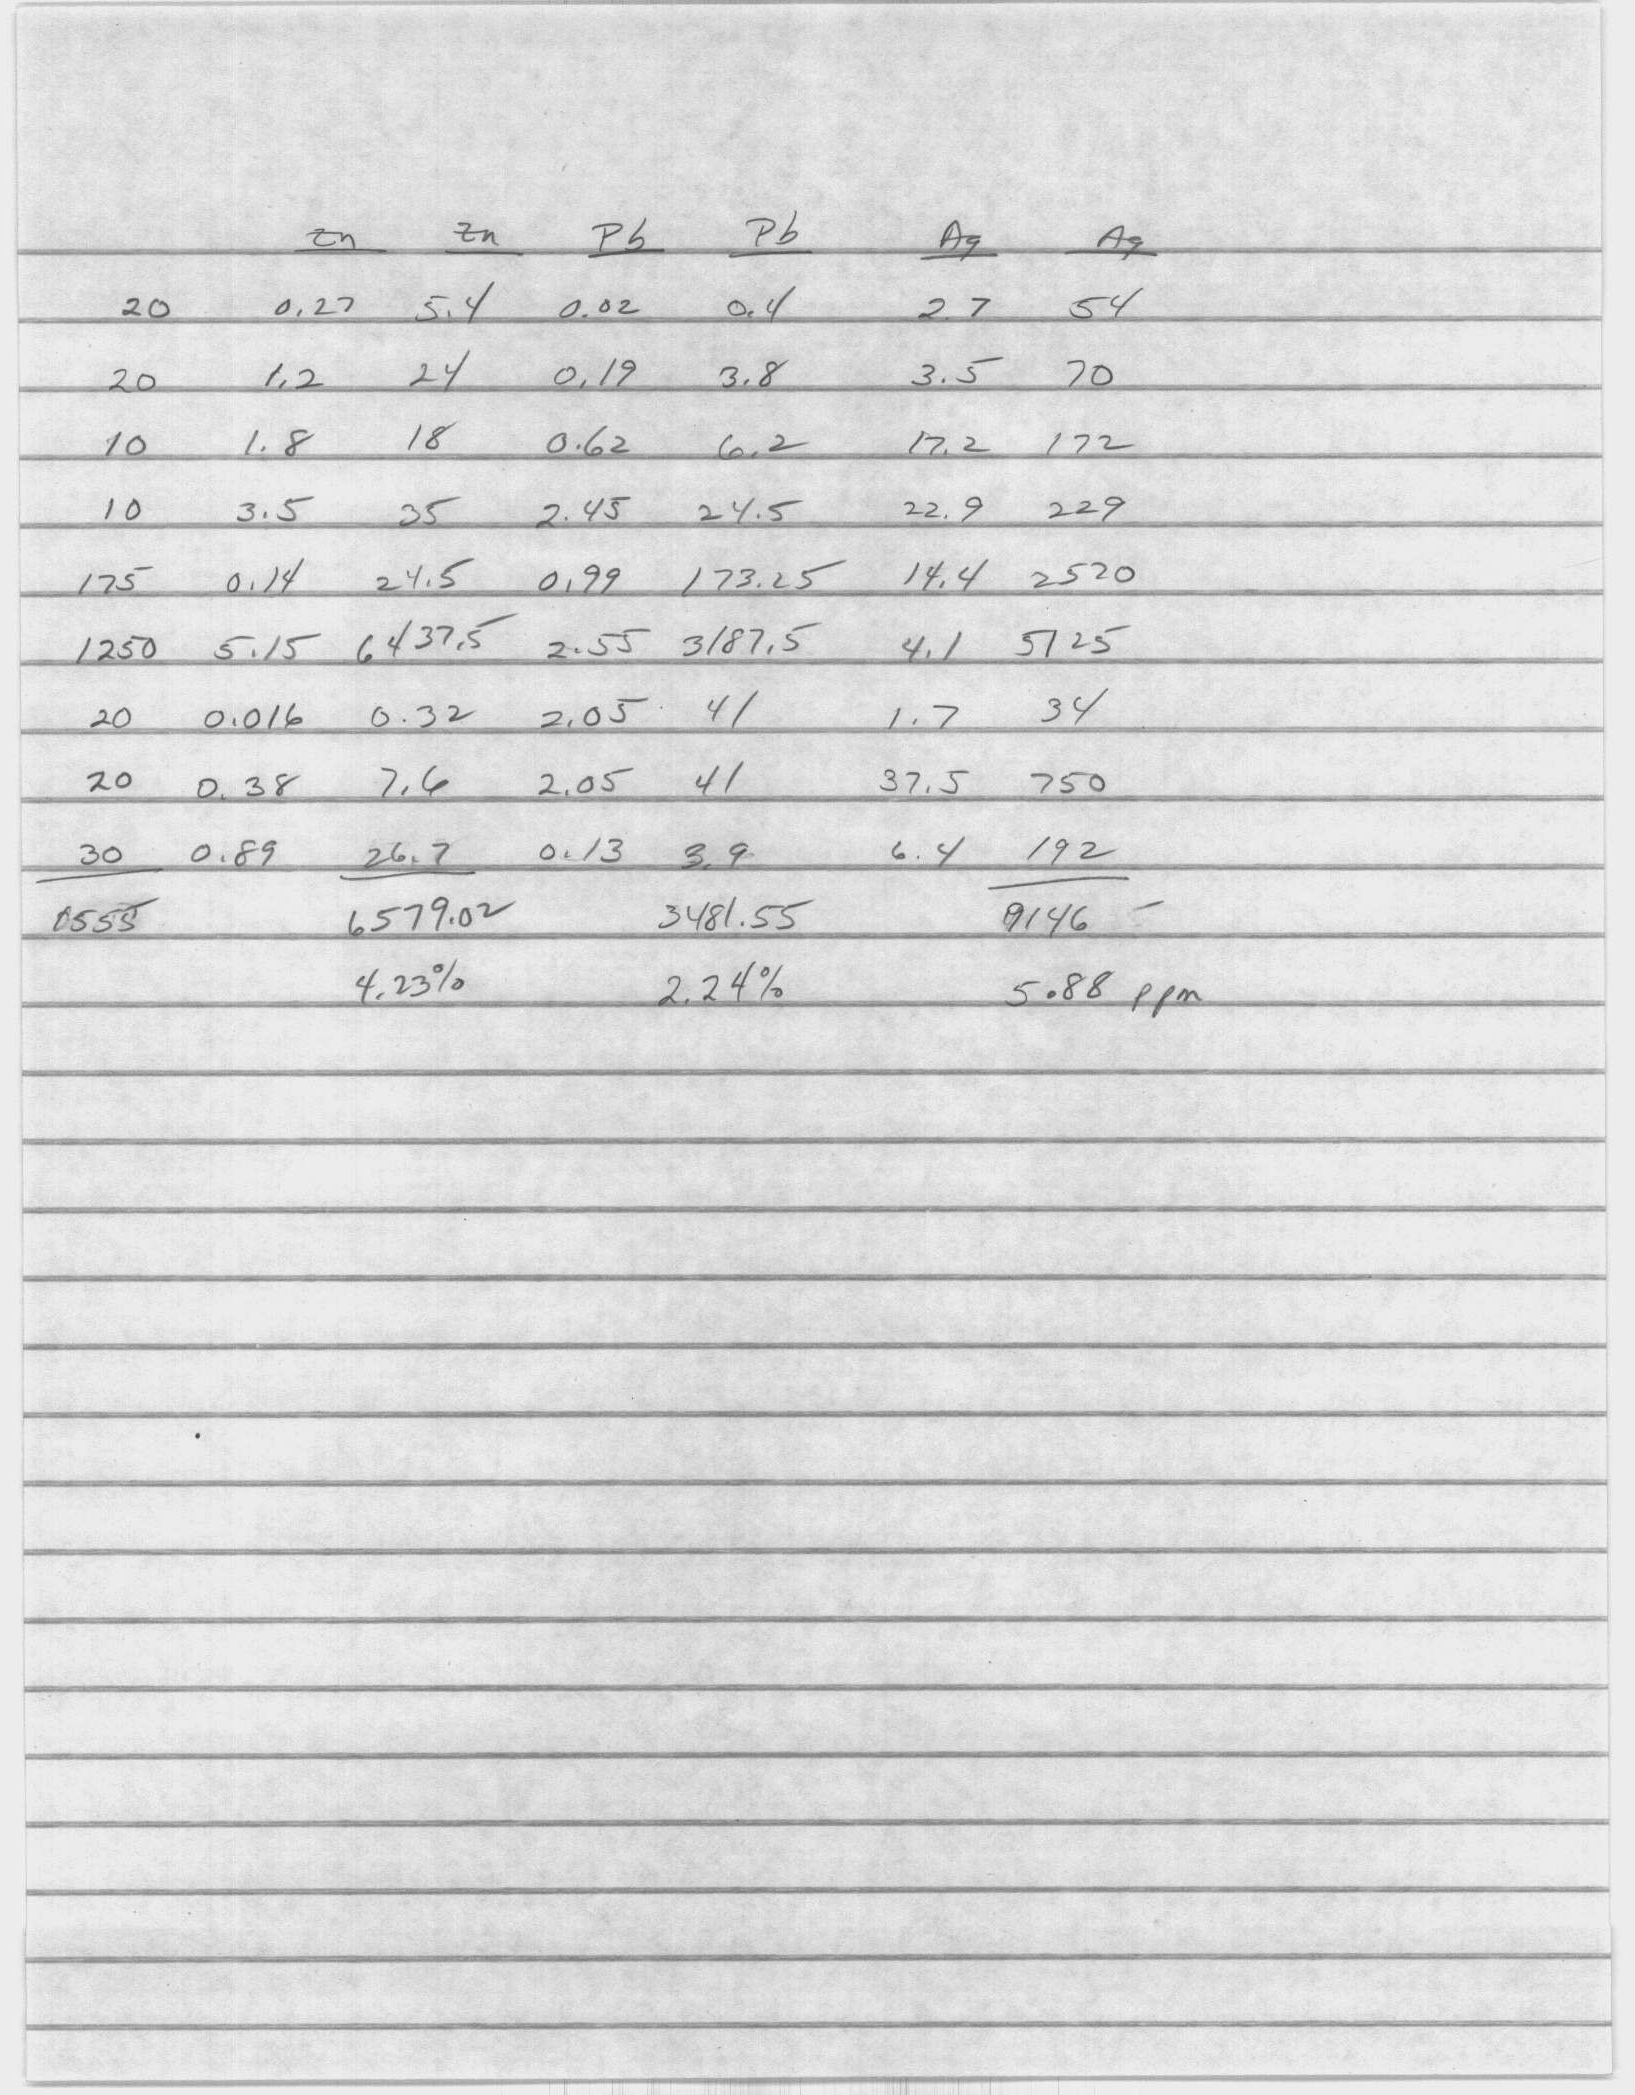 Zn Zn Pb Pb Ag Ag
20 0.27 5.4 0.02 0.4 2.7 54
20 1.2 24 0.19 3.8 3.5 70
10 1.8 18 0.62 6.2 17.2 172
10 3.5 35 2.45 24.5 22.9 229
175 0.14 24.5 0.99 173.25 14.4 2520
1250 5.15 6437.5 2.55 3187.5 4.1 5125
20 0.016 0.32 2.05 41 1.7 34
20 0.38 7.6 2.05 41 37.5 750
30 0.89 26.7 0.13 3.9 6.4 192
1555 6579.02 3481.55 9146
4.23% 2.24% 5.88 ppm